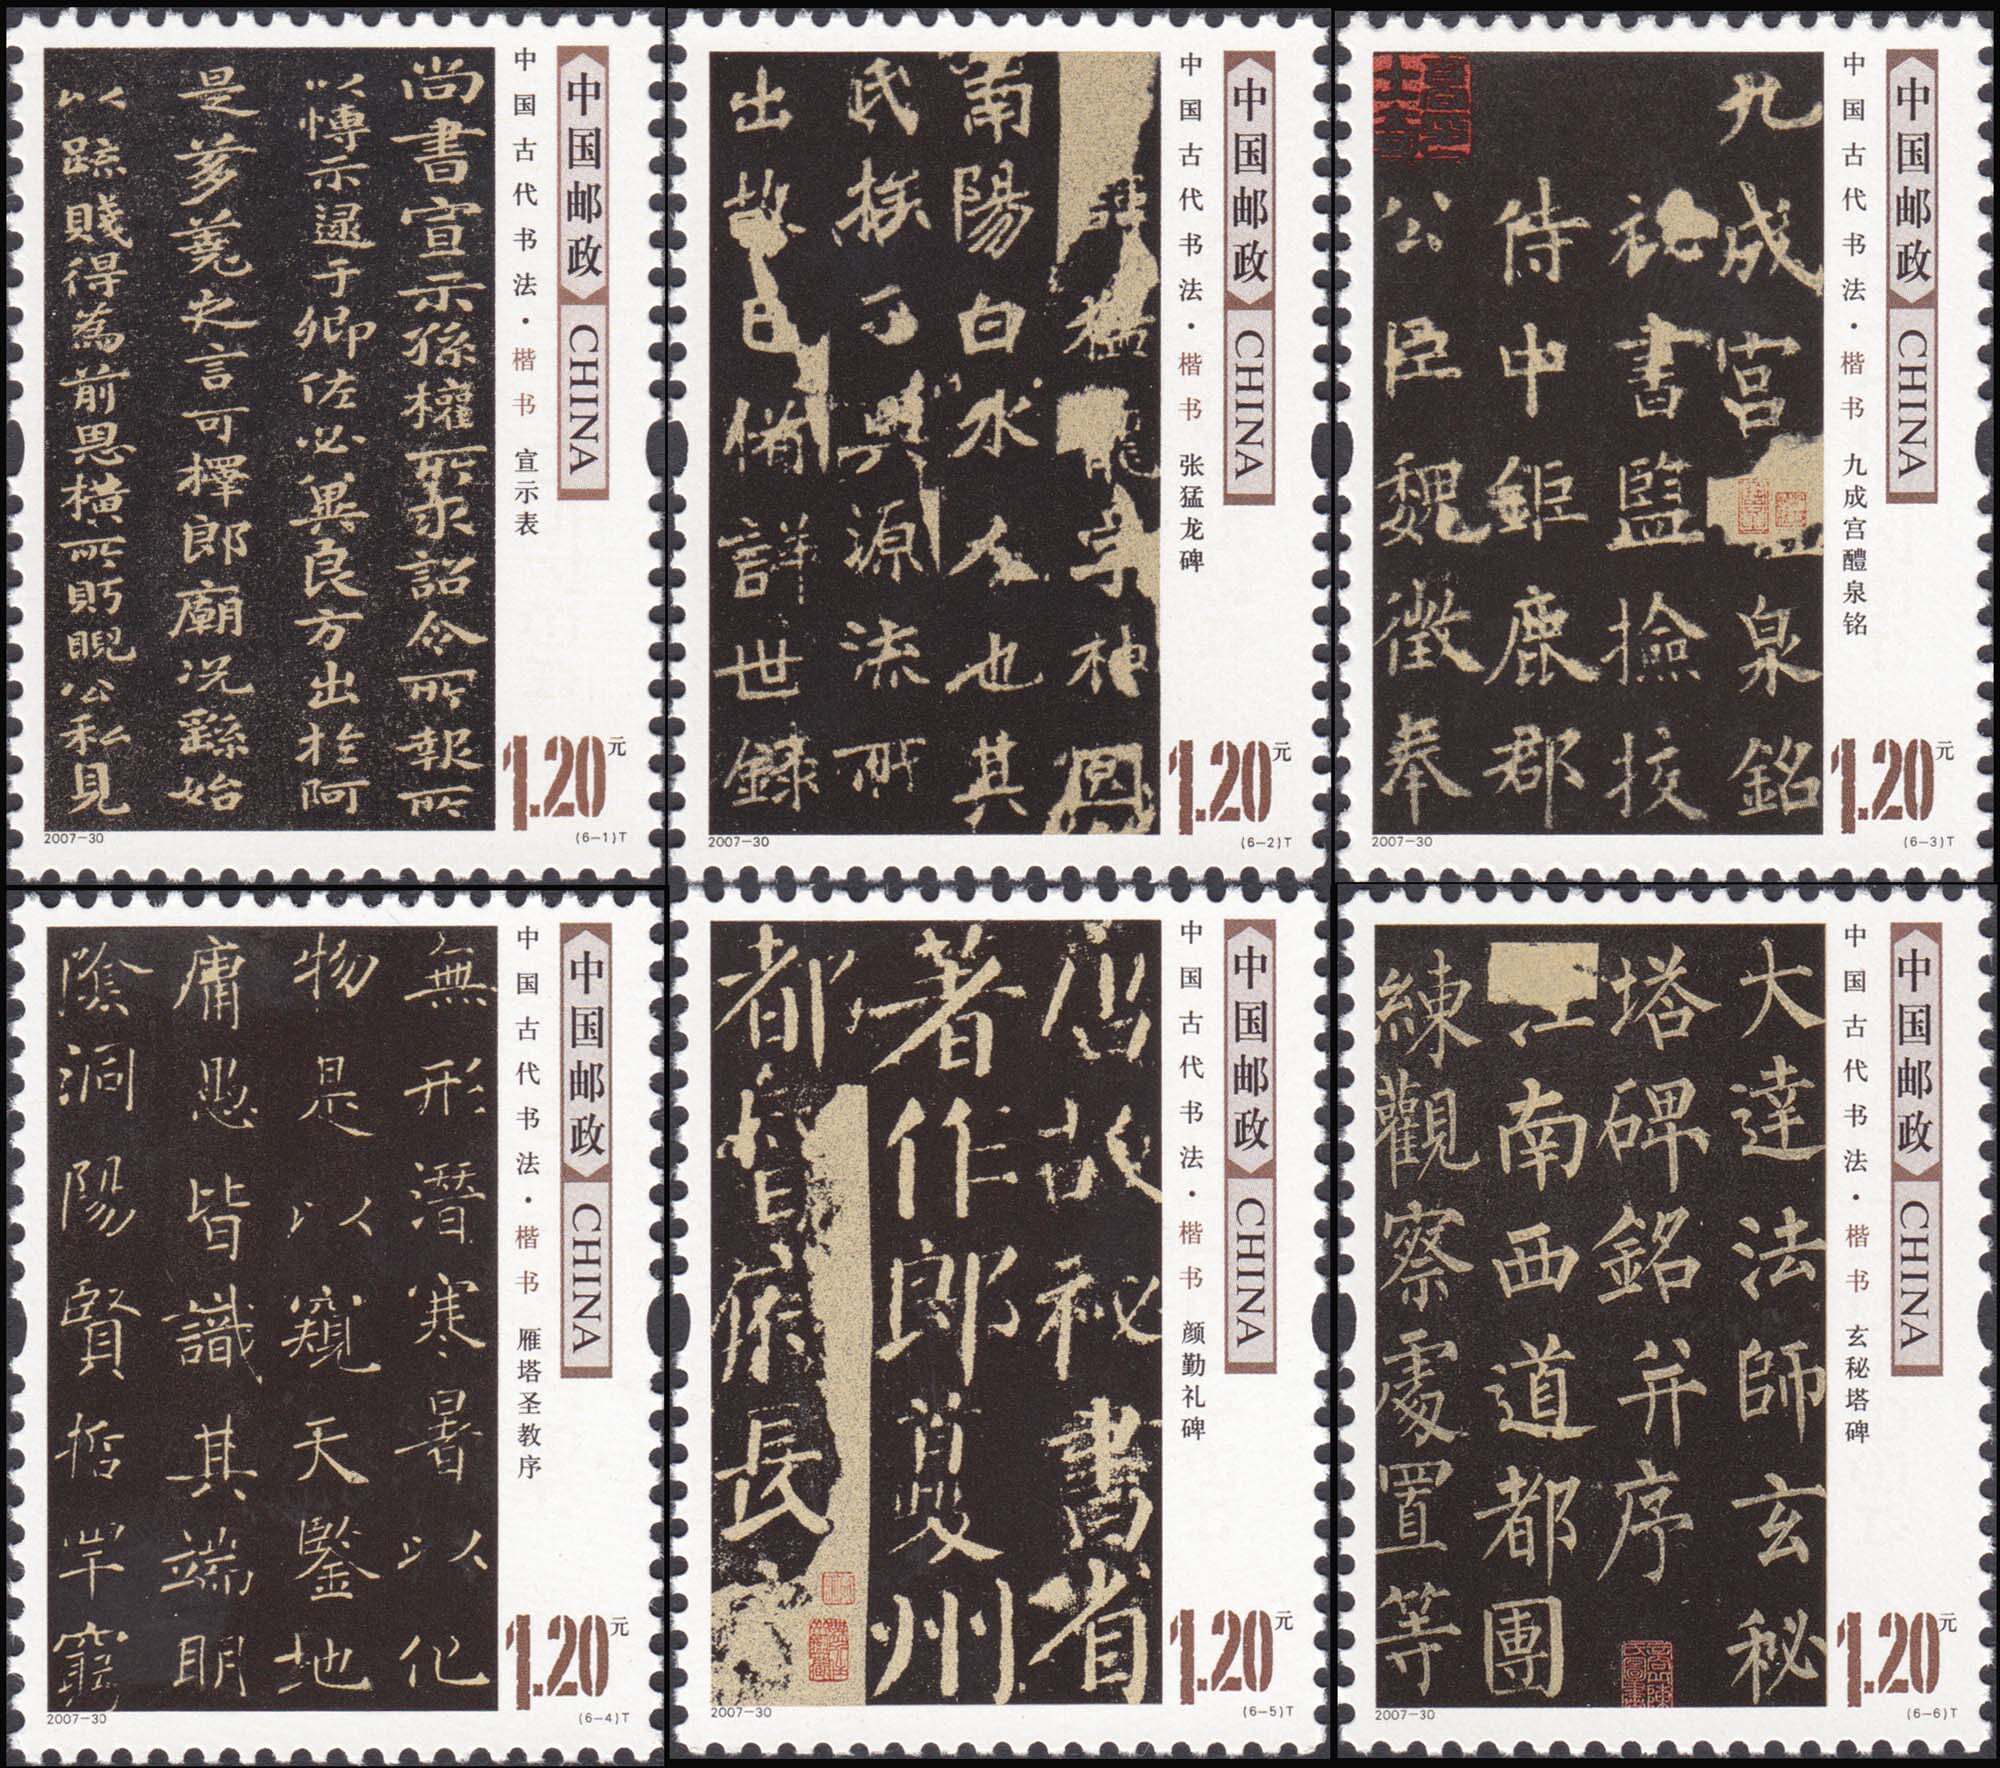 尚書宣示孫權所求詔令所報所
以博示逮于卿佐必冀良方出於阿
是芻蕘之言可擇郎廟況繇始
以疏賤得為前恩橫所眄睨公私見
中国古代书法·楷书 宣示表
中国邮政 CHINA
1.20元
2007-30
(6-1)T
猛龍字神
南陽白水人也其
氏族分興源流所
出故已備詳世錄
中国古代书法·楷书 张猛龙碑
中国邮政 CHINA
1.20元
2007-30
(6-2)T
九成宮醴泉銘
秘書監撿挍
侍中鉅鹿郡
公臣魏徵奉
中国古代书法·楷书 九成宫醴泉铭
中国邮政 CHINA
1.20元
2007-30
(6-3)T
無形潛寒暑以化
物是以窺天鑒地
庸愚皆識其端明
陰洞陽賢哲罕窮
中国古代书法·楷书 雁塔圣教序
中国邮政 CHINA
1.20元
2007-30
(6-4)T
唐故秘書省
著作郎夔州
都督府長
中国古代书法·楷书 颜勤礼碑
中国邮政 CHINA
1.20元
2007-30
(6-5)T
大達法師玄秘
塔碑銘并序
江南西道都團
練觀察處置等
中国古代书法·楷书 玄秘塔碑
中国邮政 CHINA
1.20元
2007-30
(6-6)T